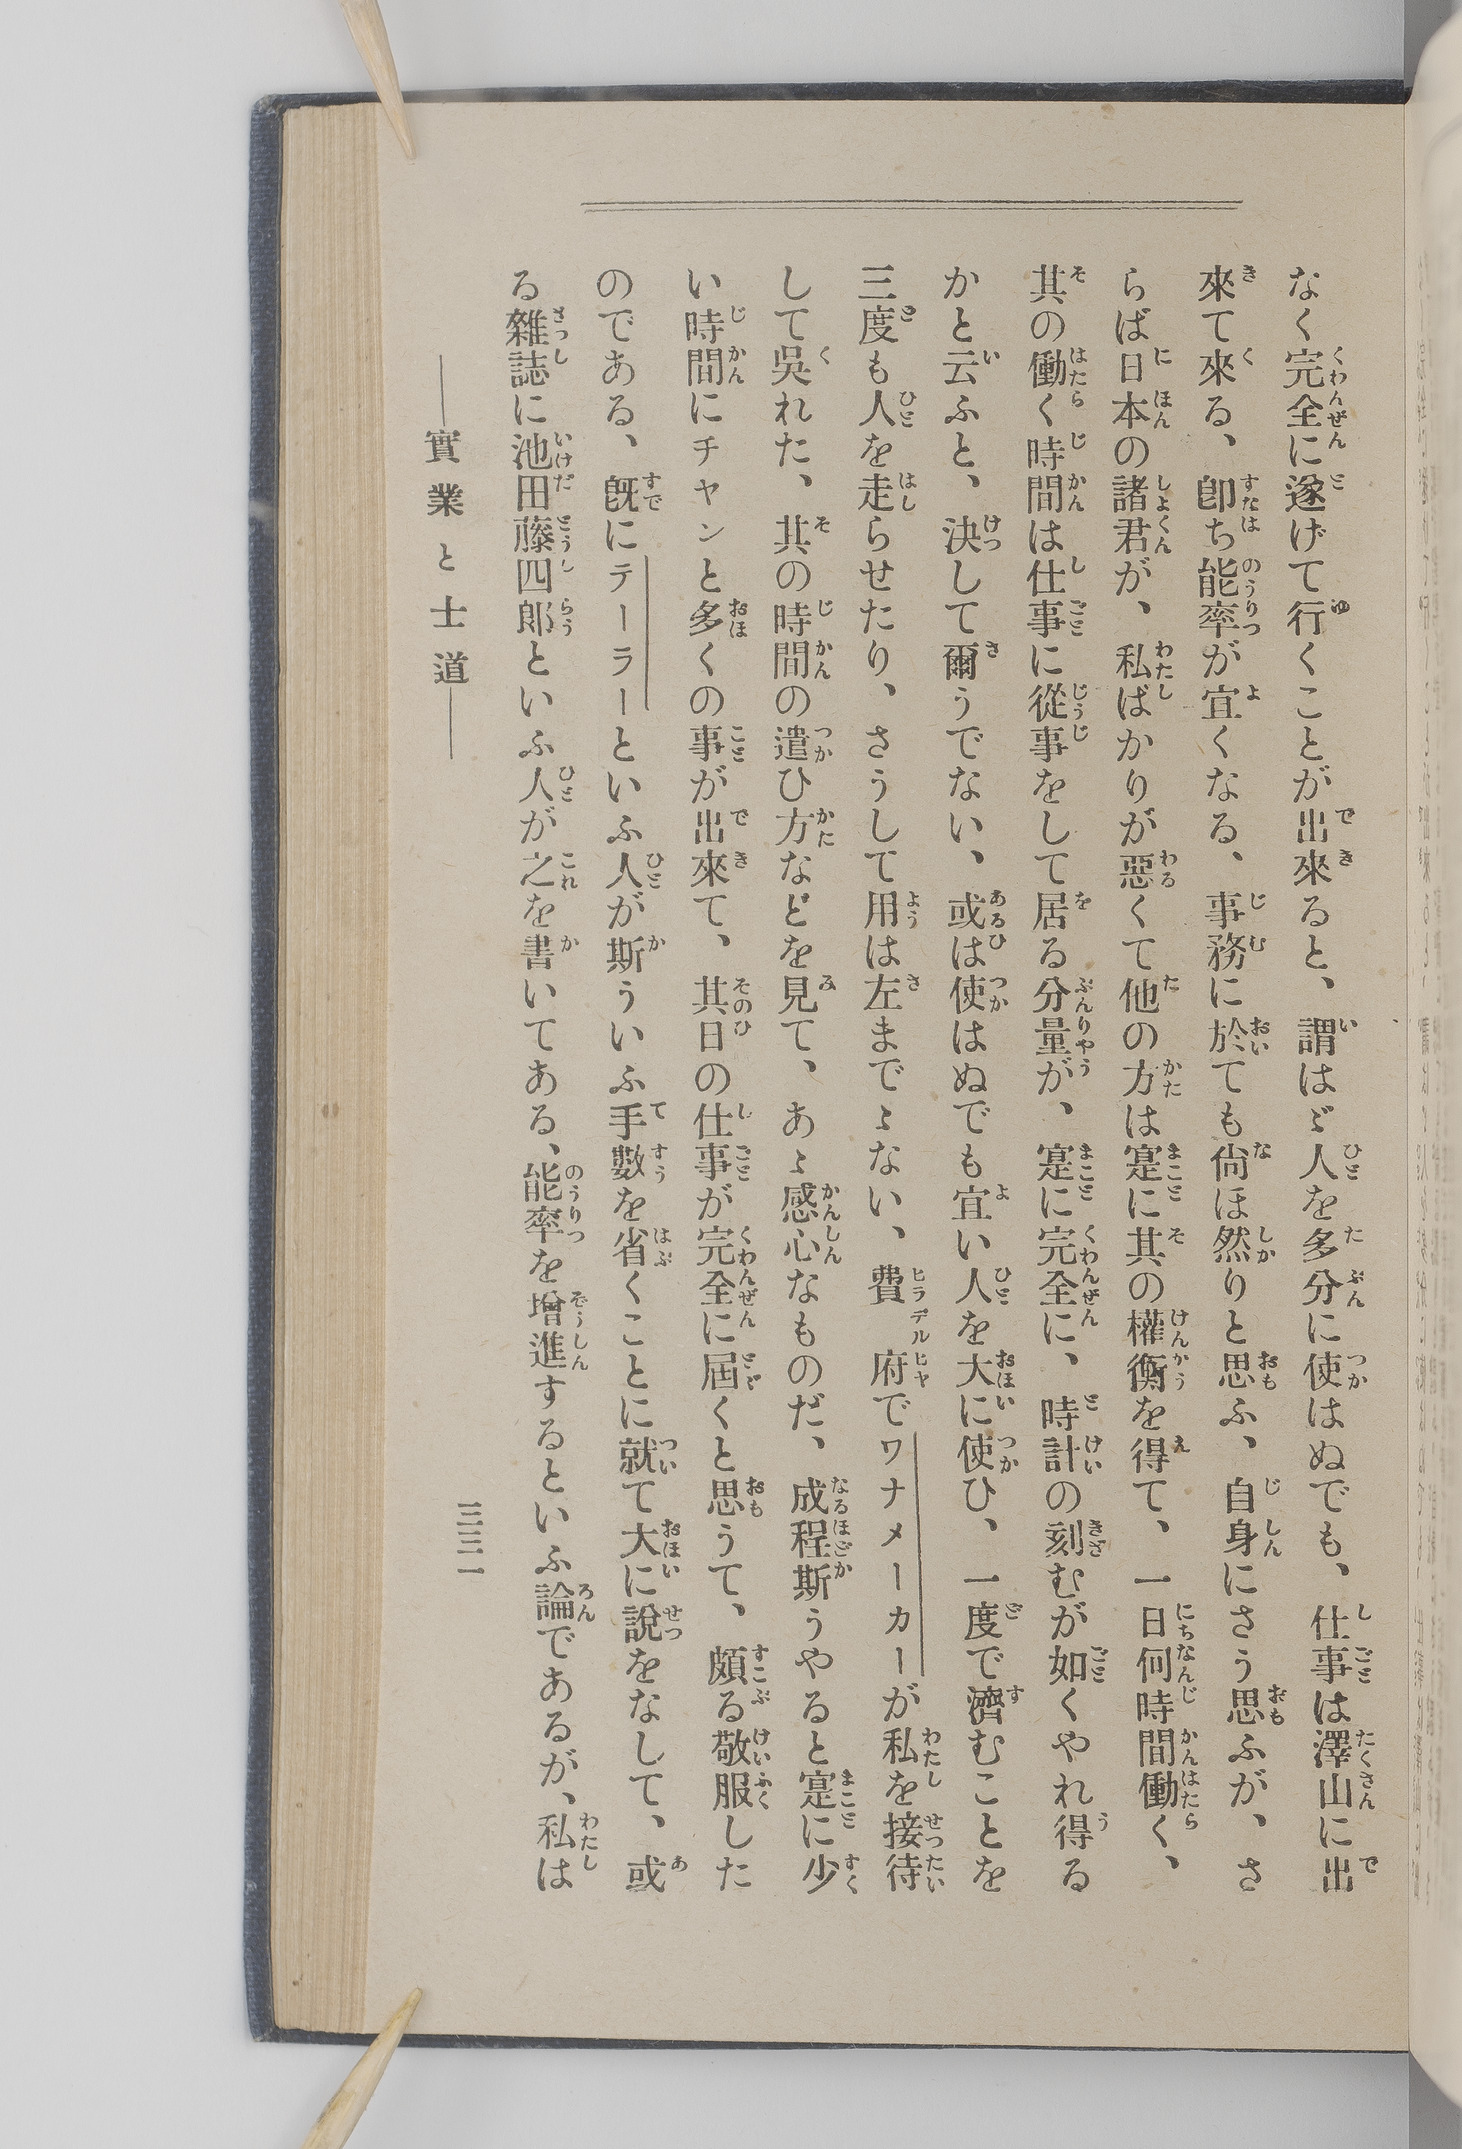 なく完全に遂げて行くことが出來ると、謂はゞ人を多分に使はぬでも、仕事は澤山に出
來て來る、卽ち能率が宜くなる、事務に於ても尙ほ然りと思ふ、自身にさう思ふが、さ
らば日本の諸君が、私ばかりが惡くて他の方は寔に其の權衡を得て、一日何時間働く、
其の働く時間は仕事に從事をして居る分量が、寔に完全に、時計の刻むが如くやれ得る
かと云ふと、決して爾うでない、或は使はぬでも宜い人を大に使ひ、一度で濟むことを
三度も人を走らせたり、さうして用は左までゝない、費府でワナメーカーが私を接待
して吳れた、其の時間の遣ひ方などを見て、あゝ感心なものだ、成程斯うやると寔に少
い時間にチヤンと多くの事が出來て、其日の仕事が完全に屆くと思うて、頗る敬服した
のである、旣にテーラーといふ人が斯ういふ手數を省くことに就て大に說をなして、或
る雜誌に池田藤四郞といふ人が之を書いてある、能率を增進するといふ論であるが、私は
――實業と士道――
三三一